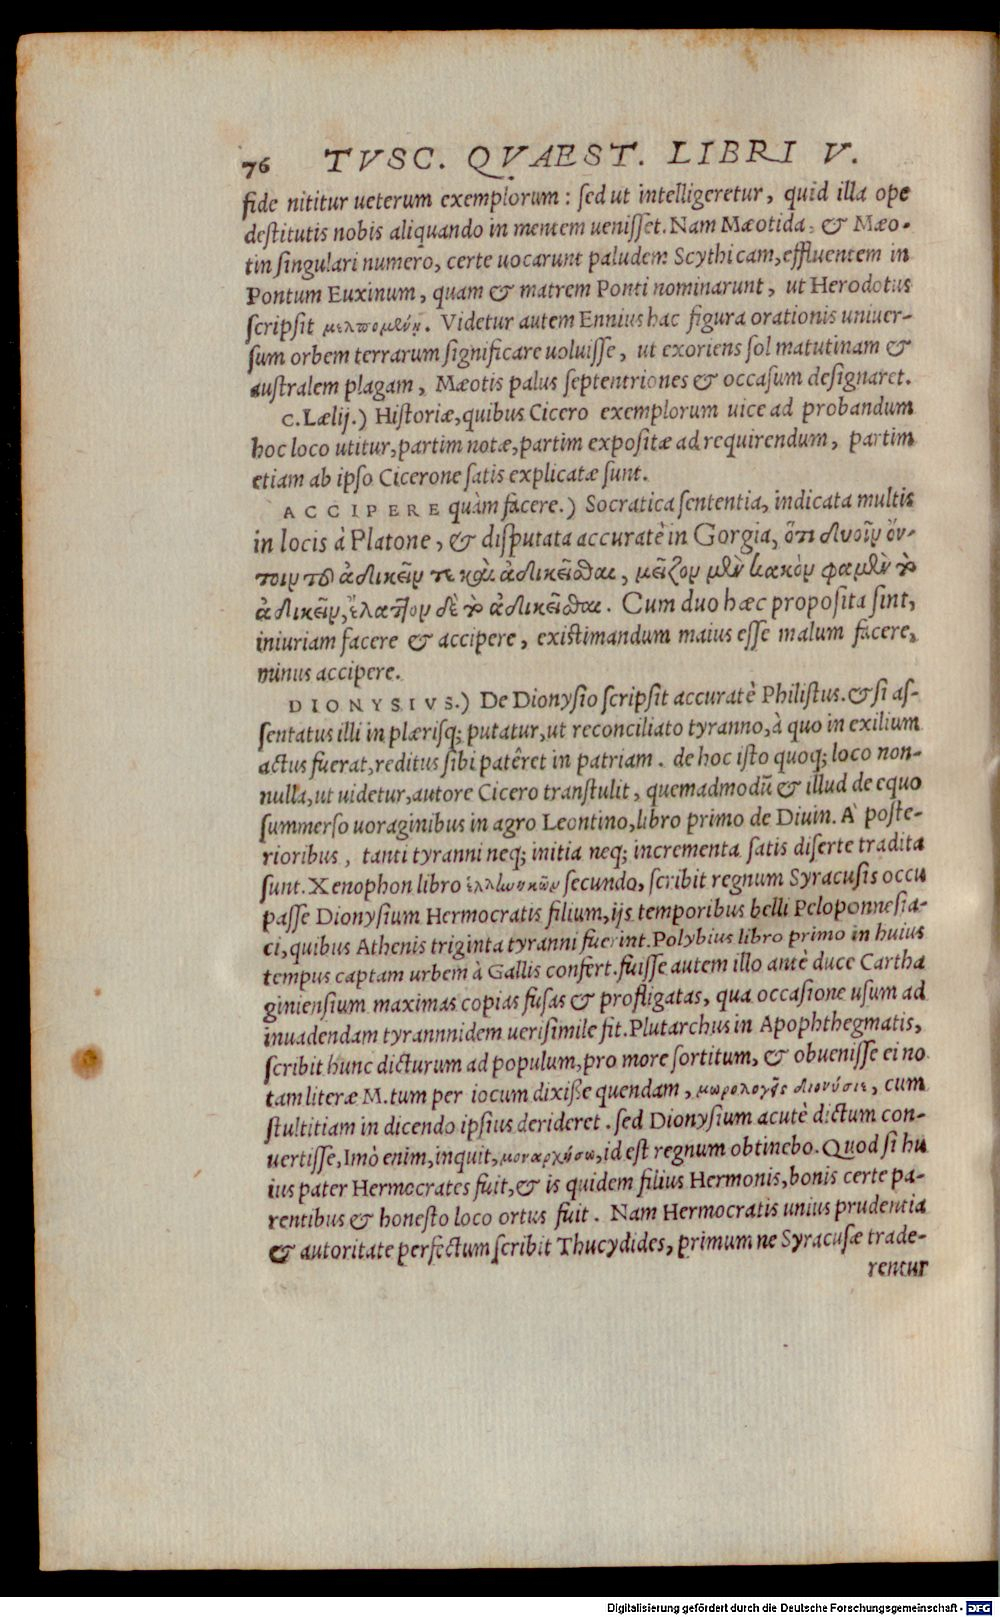 76 TVSC. QVAEST. LIBRI V.
fide nititur ueterum exemplorum: ſed ut intelligeretur, quid illa ope
deſtitutis nobis aliquando in mentem ueniſſet. Nam Mæotida, & Mæo-
tin ſingulari numero, certe uocarunt paludem Scythicam, effluentem in
Pontum Euxinum, quam & matrem Ponti nominarunt, ut Herodotus
ſcripſit μελπομένῃ. Videtur autem Ennius hac figura orationis uniuer-
ſum orbem terrarum ſignificare uoluiſſe, ut exoriens ſol matutinam &
auſtralem plagam, Mæotis palus ſeptentriones & occaſum deſignaret.
C. Lælij.) Hiſtoriæ, quibus Cicero exemplorum uice ad probandum
hoc loco utitur, partim notæ, partim expoſitæ ad requirendum, partim
etiam ab ipſo Cicerone ſatis explicatæ ſunt.
ACCIPERE quàm facere.) Socratica ſententia, indicata multis
in locis à Platone, & diſputata accuratè in Gorgia, ὅτι δυοῖν ὄν-
τοιν τοῦ ἀδικεῖν τε καὶ ἀδικεῖσθαι, μεῖζον μὲν κακὸν φαμὲν τὸ
ἀδικεῖν, ἔλαττον δὲ τὸ ἀδικεῖσθαι. Cum duo hæc propoſita ſint,
iniuriam facere & accipere, exiſtimandum maius eſſe malum facere,
minus accipere.
DIONYSIVS.) De Dionyſio ſcripſit accuratè Philiſtus. & ſi aſ-
ſentatus illi in plæriſq; putatur, ut reconciliato tyranno, à quo in exilium
actus fuerat, reditus ſibi patêret in patriam. de hoc iſto quoq; loco non-
nulla, ut uidetur, autore Cicero tranſtulit, quemadmodũ & illud de equo
ſummerſo uoraginibus in agro Leontino, libro primo de Diuin. A' poſte-
rioribus, tanti tyranni neq; initia neq; incrementa ſatis diſerte tradita
ſunt. Xenophon libro ἑλληνικῶν ſecundo, ſcribit regnum Syracuſis occu
paſſe Dionyſium Hermocratis filium, ijs temporibus belli Peloponneſia-
ci, quibus Athenis triginta tyranni fuerint. Polybius libro primo in huius
tempus captam urbem à Gallis confert. fuiſſe autem illo antè duce Cartha
ginienſium maximas copias fuſas & profligatas, qua occaſione uſum ad
inuadendam tyrannnidem ueriſimile fit. Plutarchus in Apophthegmatis,
ſcribit hunc dicturum ad populum, pro more ſortitum, & obueniſſe ei no
tam literæ M. tum per iocum dixiſſe quendam, μωρολογεῖς διονύσιε, cum
ſtultitiam in dicendo ipſius derideret. ſed Dionyſium acutè dictum con-
uertiſſe, Imò enim, inquit, μοναρχήσω, id eſt regnum obtinebo. Quod ſi hu
ius pater Hermocrates fuit, & is quidem filius Hermonis, bonis certe pa-
rentibus & honeſto loco ortus fuit. Nam Hermocratis unius prudentia
& autoritate perfectum ſcribit Thucydides, primum ne Syracuſæ trade-
rentur
Digitalisierung gefördert durch die Deutsche Forschungsgemeinschaft - DFG